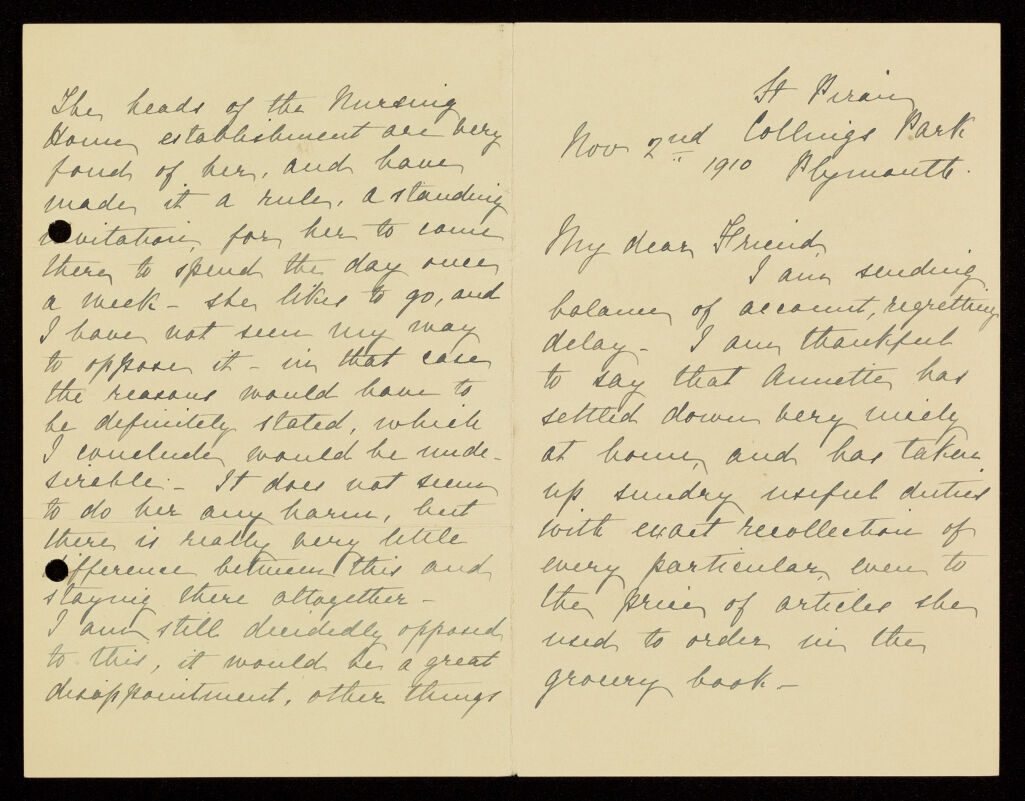 St Piran
Collings Park
Nov 2nd 1910 Plymouth.
My dear Friend
I am sending
balance of account, regretting
delay - I am thankful
to say that Annette has
settled down very nicely
at home, and has taken
up sundry useful duties
with exact recollection of
every particular, even to
the price of articles she
used to order in the
grocery book -
The heads of the Nursing
Home establishment are very
fond of her, and have
made it a rule, a standing
invitation, for her to come
there to spend the day once
a week - she likes to go, and
I have not seen my way
to oppose it - in that case
the reasons would have to
be definitely stated, which
I conclude would be unde-
sirable. - It does not seem
to do her any harm, but
there is really very little
difference between this and
staying there altogether -
I am still decidedly opposed
to this, it would be a great
disappointment, other things